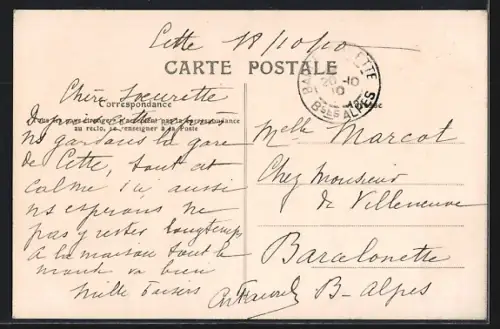 Cette 18/10/10
CARTE POSTALE
Chère Soeurette
Correspondance
au recto, se renseigner à la Poste
ns gardons la gare
de Cette, tout est
calme ici aussi
ns esperons ne
pas y rester longtemps
A la maison tout le
monde va bien
Mille baisers
BARCELONNETTE
20-10
10
Bses ALPES
Melle Marcot
Chez Monsieur
de Villeneuve
Barcelonette
B-Alpes